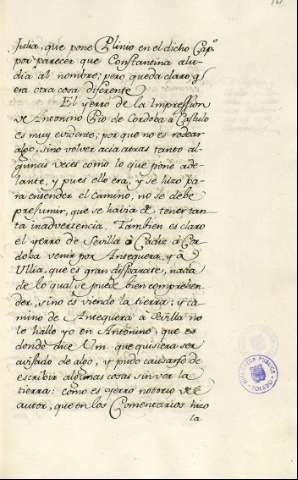 Julia, que pone Plinio en el dicho Capº
por parecer que Constantina alu-
dia al nombre; pero queda claro q̃
era otra cosa diferente.
El yerro de la Impression
de Antonino Pio de Cordoba à Castulo
es muy evidente; por que no es rodear
algo, sino volver acia atras tanto al-
gunas veces como lo que pone ade-
lante, y pues ello era, y se hizo pa-
ra entender el camino, no se debe
presumir, que se havia de tener tan-
ta inadvertencia. Tambien es claro
el yerro de Sevilla à Cadiz à Cor-
doba venir por Antequera, y à
Ullia, que es gran disparate, nada
de lo qual se puede bien comprehen-
der, sino es viendo la tierra; y ca-
mino de Antequera à Sevilla no
lo hallo yo en Antonino, que es
donde dice Vm. que quisiera ser
avisado de algo, y pudo causarlo de
escribir algunas cosas sin ver la
tierra: como es yerro notorio de el
autor, que en los Comentarios hizo
la
BIBLIOTECA PUBLICA
TOLEDO